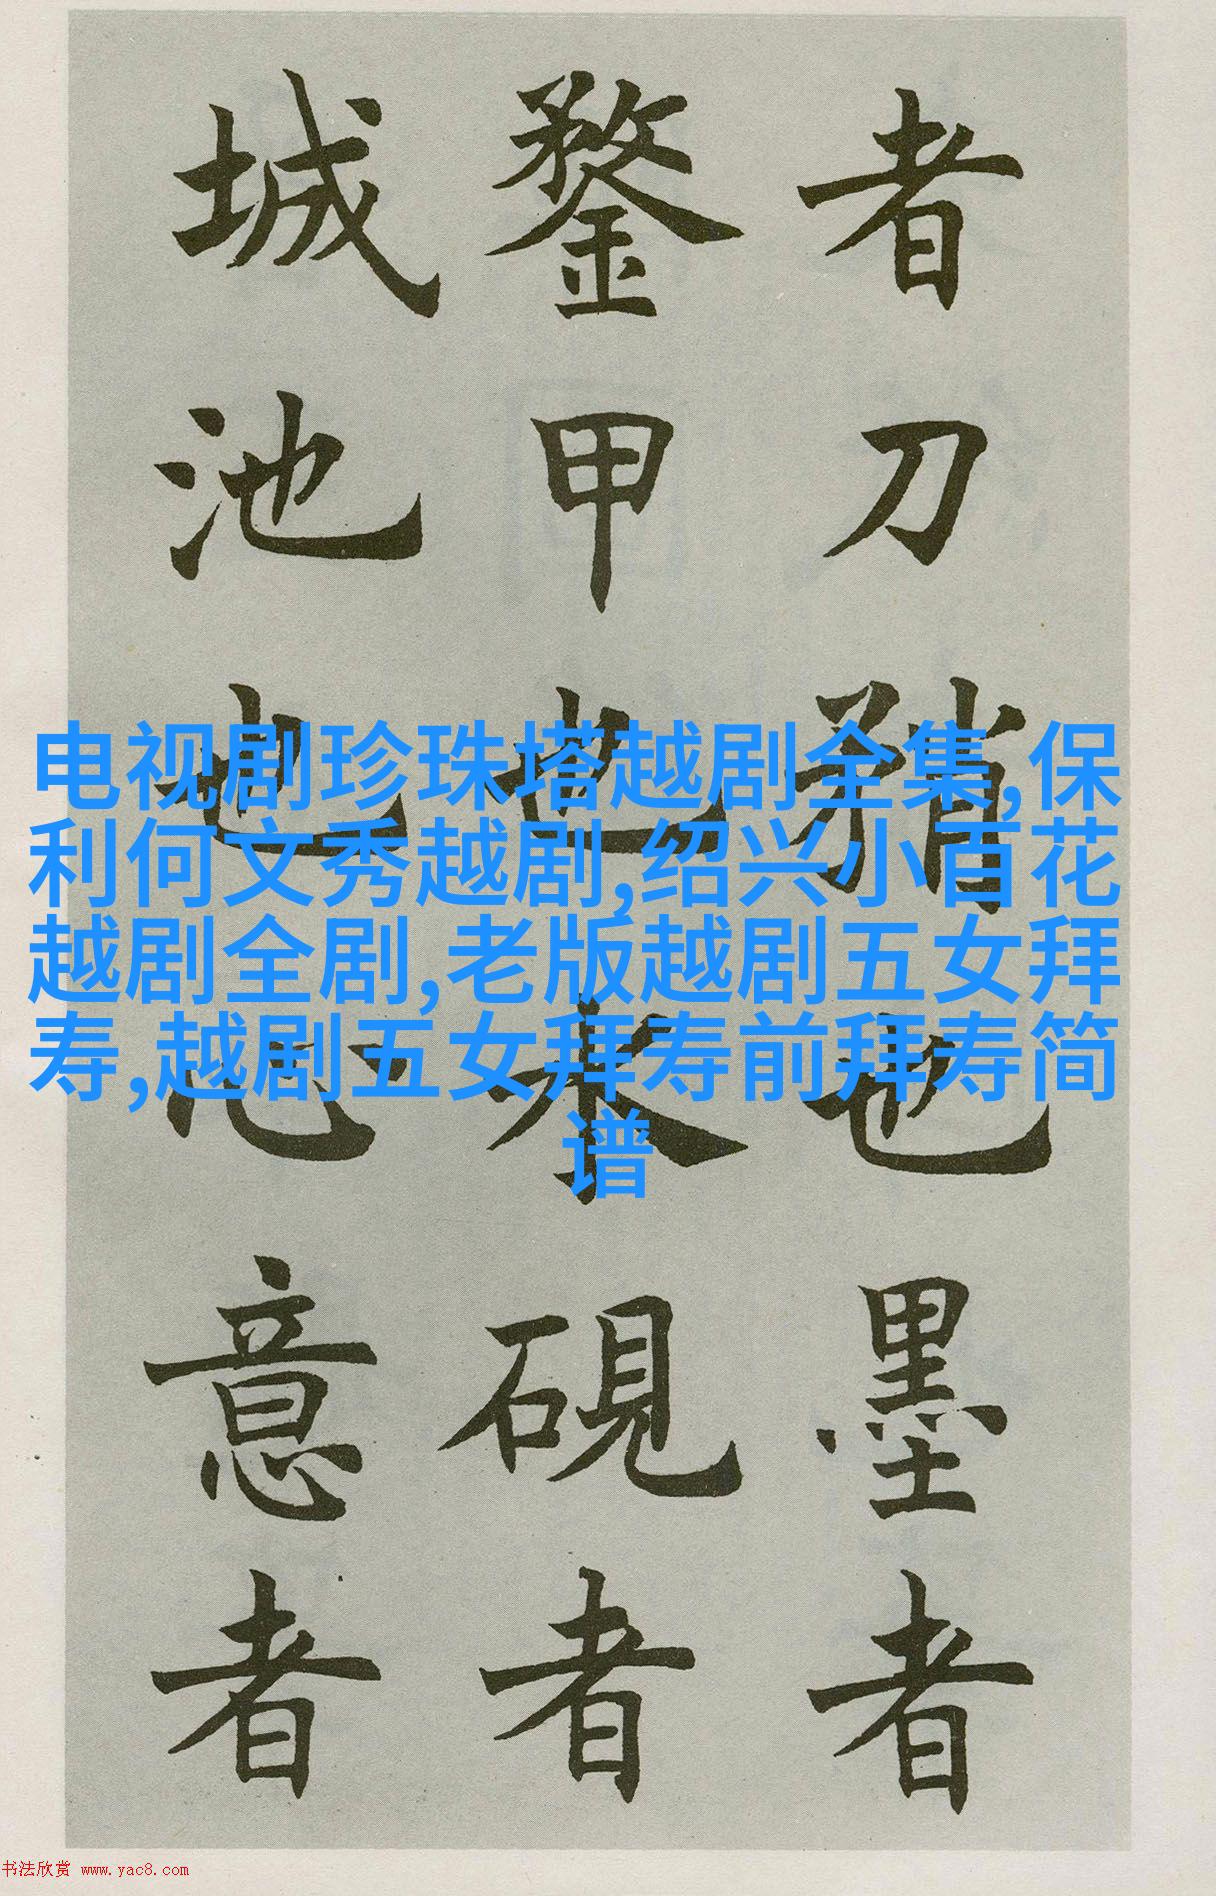 者刀矟也墨者
鍪甲也水硯者
城池也心意者
电视剧珍珠塔越剧全集,保
利何文秀越剧,绍兴小百花
越剧全剧,老版越剧五女拜
寿,越剧五女拜寿前拜寿简
谱
书法欣赏 www.yac8.com